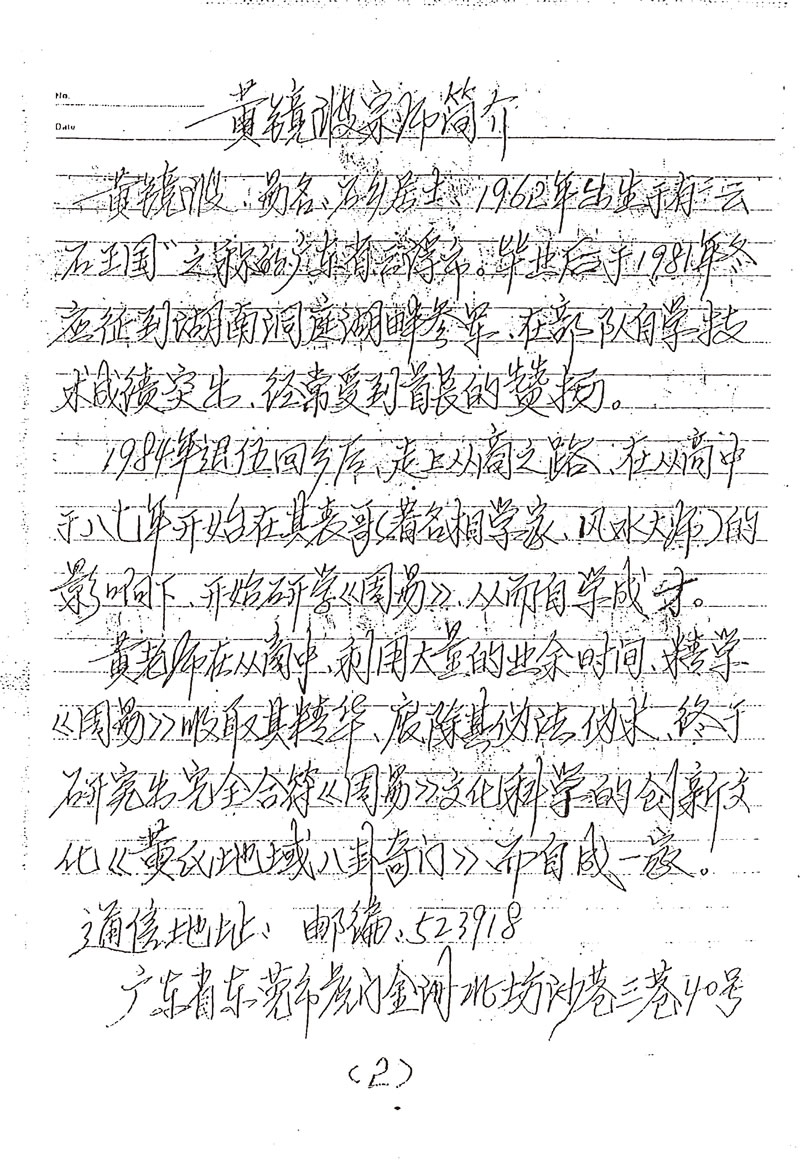 No.
Date
黄镜波宗师简介
黄镜波、易名、石乡居士、1962年出生于有“云
石王国”之称的广东省云浮市。毕业后于1981年冬
应征到湖南洞庭湖畔参军、在部队自学技
术成绩突出、经常受到首长的赞扬。
1984年退伍回乡后、走上从商之路、在从商中
于八七年开始在其表哥(著名相学家、风水大师)的
影响下、开始研学《周易》、从而自学成才。
黄老师在从商中、利用大量的业余时间、精学
《周易》吸取其精华、废除其伪法伪术、终于
研究出完全合符《周易》文化科学的创新文
化《黄氏地域八卦奇门》、而自成一家。
通信地址: 邮编:523918
广东省东莞市虎门金洲北坊沙巷三巷40号
(2)